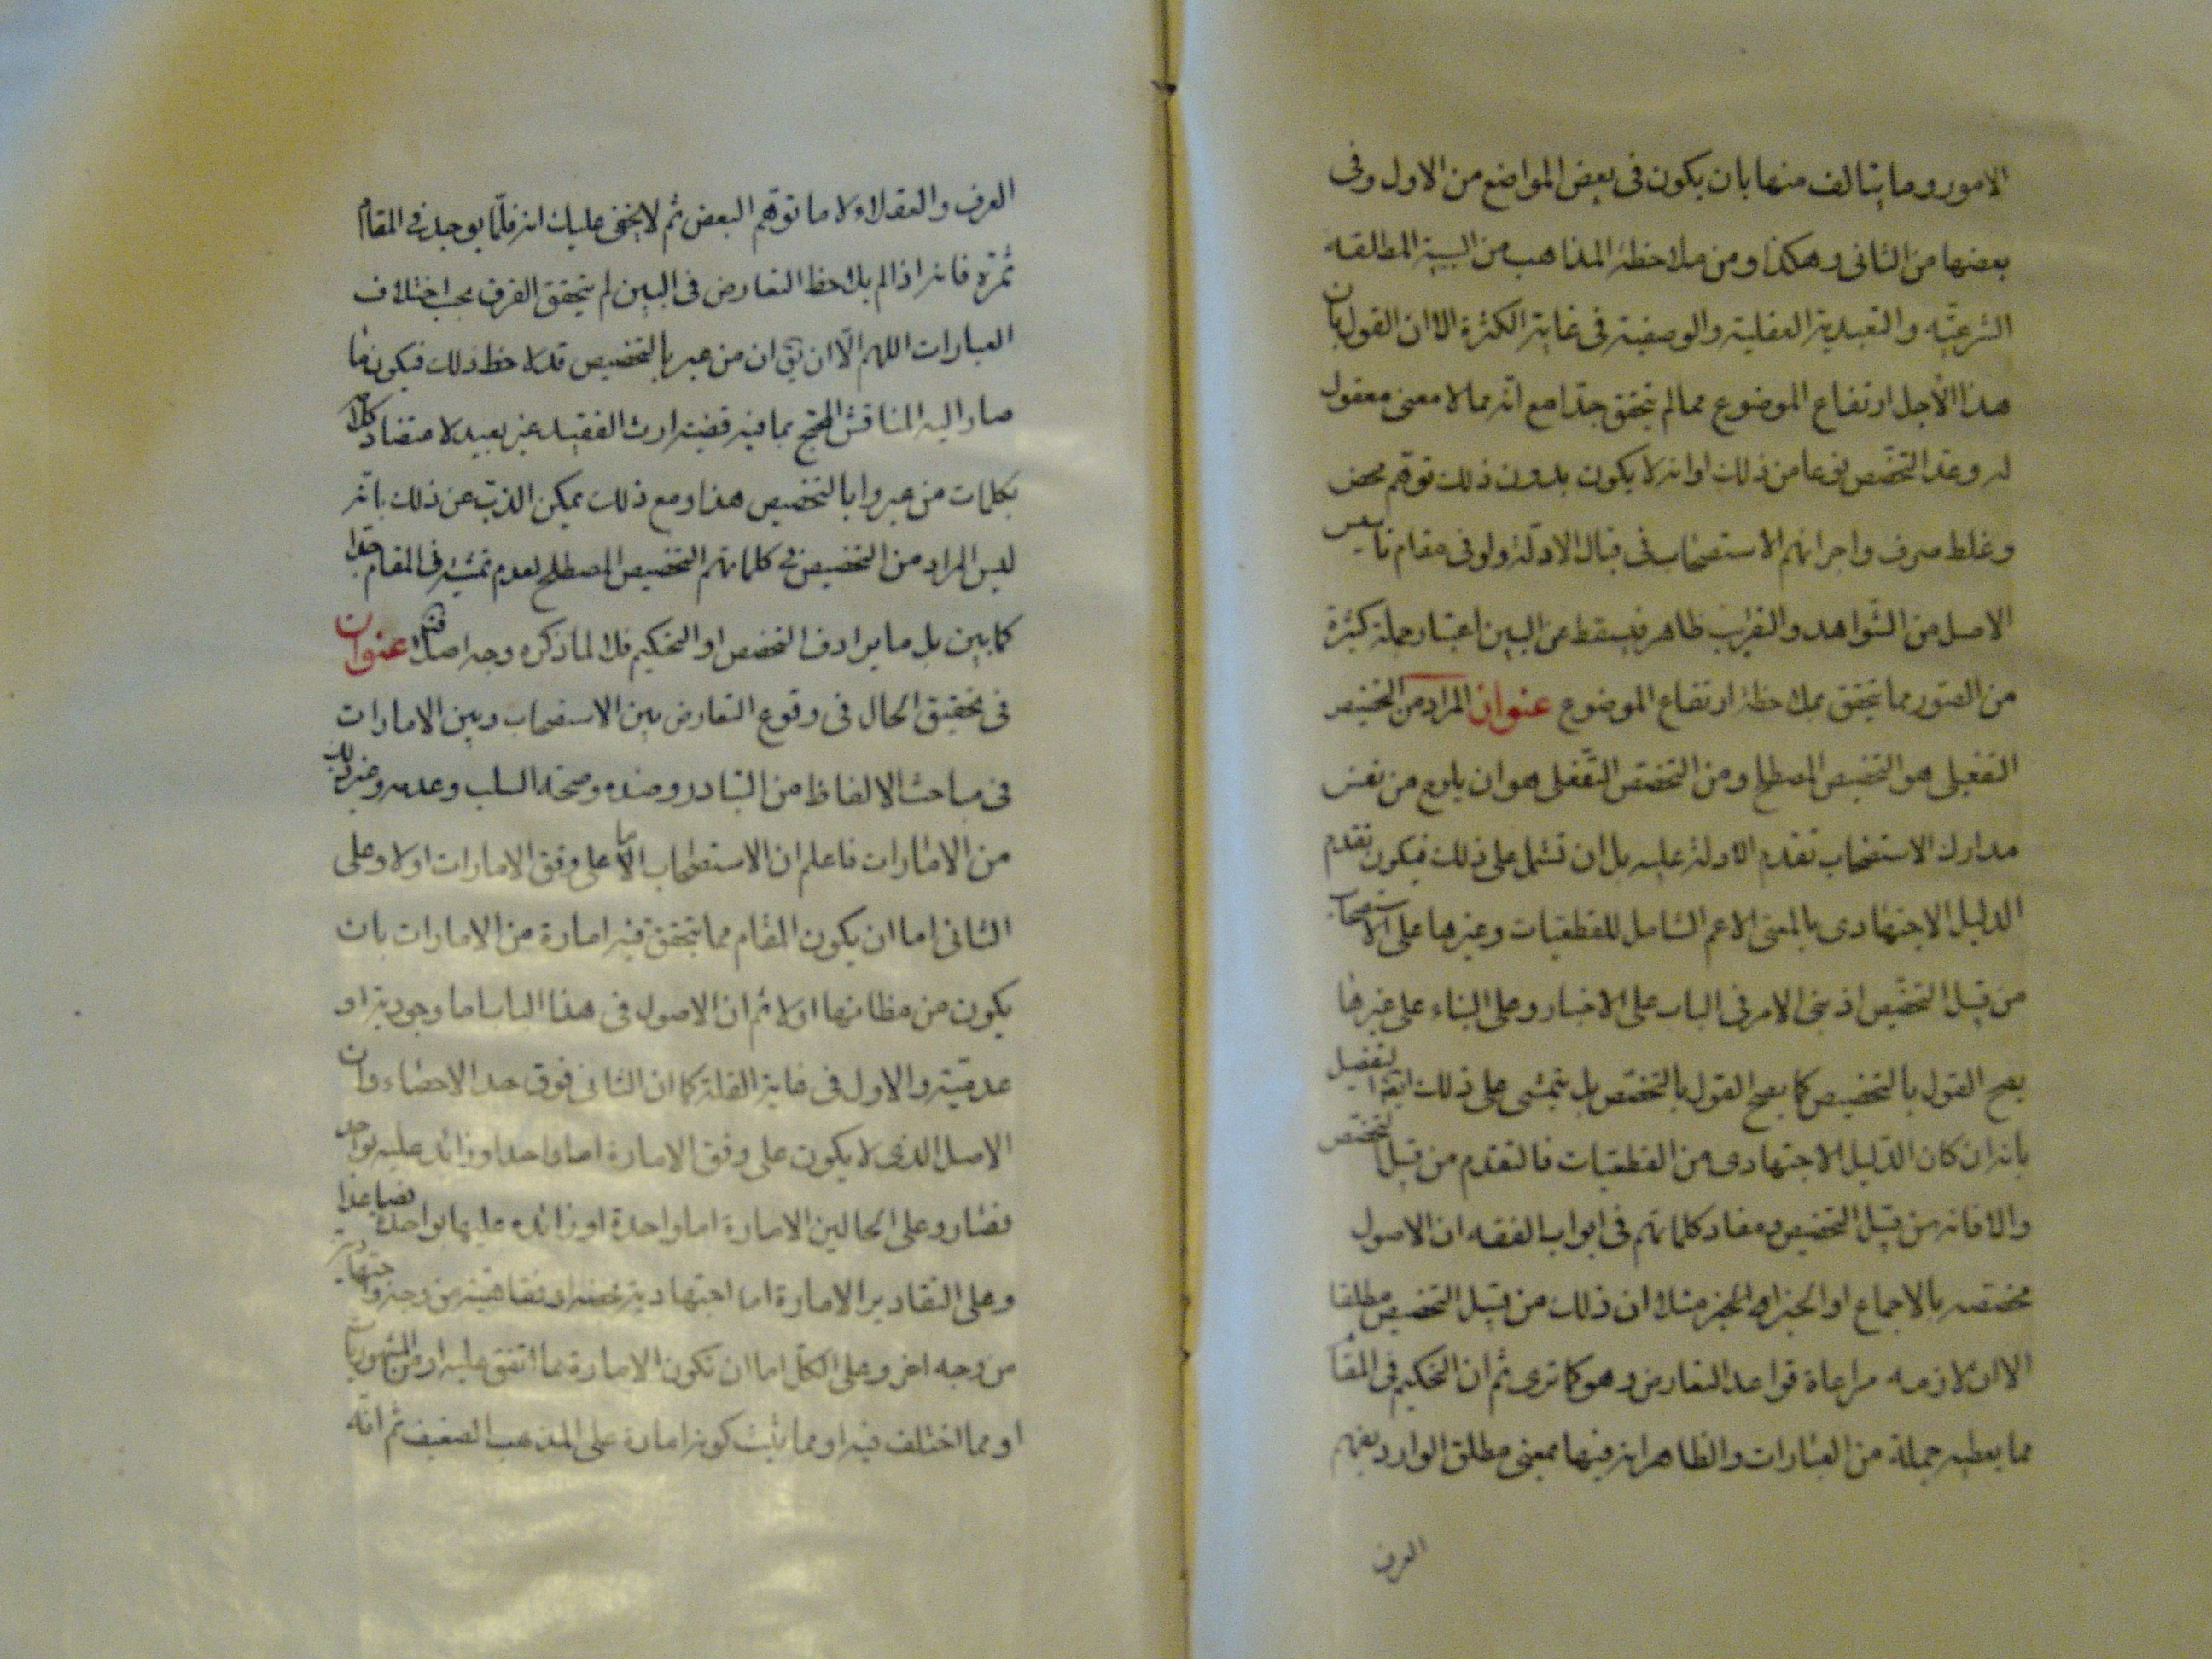 الامور وما يتالف منها بان يكون فى بعض المواضع من الاول وفى
بعضها من الثانى وهكذا ومن ملاحظة المذاهب من السببية المطلقه
الشرعيّه والتعبدية العقلية والوصفية فى غاية الكثرة الا ان القول بان
هذا لأجل ارتفاع الموضوع مما لم يتحقق جدّا مع انّه مما لا معنى معقول
له وعدّ التخصّص نوعا من ذلك او انه لا يكون بدون ذلك توهّم محض
وغلط صرف واجرائهم الاستصحاب فى قبال الادلّة ولو فى مقام تاسيس
الاصل من الشّواهد والقرائن ظاهر فيسقط عن البين اعتبار جملة كثيرة
من الصّور مما يتحقق بملاحظة ارتفاع الموضوع عنوان المراد من التخصيص
التفعيلى هو التخصيص المصطلح ومن التخصّص التّفعّلى هو ان يلوح من نفس
مدارك الاستصحاب تقدم الادلة عليه بل ان تشتمل على ذلك فيكون تقدم
الدليل الاجتهادى بالمعنى الاعم الشامل للقطعيّات وغيرها على الاستصحاب
من قبيل التخصّص اذ بنى الامر فى الباب على الاخبار وعلى البناء على غيرها
يصح القول بالتخصيص كما يصح القول بالتخصّص بل يتمشى على ذلك ايضا التفصيل
بانه ان كان الدّليل الاجتهادى من القطعيّات فالتقدم من قبيل التخصّص
والا فانه من قبيل التخصيص ومفاد كلماتهم فى ابواب الفقه ان الاصول
مخصّصه بالاجماع او الخبر مثلا ان ذلك من قبيل التخصيص مطلقا
الا ان لازمه مراعاة قواعد التعارض وهو كما ترى ثم ان التحكيم فى المقام
مما يعطيه جملة من العبارات والظاهر انه فيها بمعنى مطلق الوارد
العرف
العرف والعقلاء لا ما توهّم البعض ثم لا يخفى عليك انه قلّما يوجد فى المقام
ثمرة فانه اذا لم يلاحظ التعارض فى البين لم يتحقق الفرق بحسب اختلاف
العبارات اللهم الّا ان يق ان من عبر بالتخصيص قد لاحظ ذلك فيكون ما
صار اليه المناقش المحتج بما فيه قضية ارث الفقيد غير بعيد لا متضادّ كلا
بكلمات من عبروا بالتخصيص هذا ومع ذلك يمكن الذبّ عن ذلك بانّه
ليس المراد من التخصيص فى كلماتهم التخصيص المصطلح لعدم تمشيه فى المقام جدا
كما بين بل ما يرادف التخصص او التحكيم فلا لما ذكره وجه اصلا عنوان
فى تحقيق الحال فى وقوع التعارض بين الاستصحاب وبين الامارات
فى مباحث الالفاظ من التبادر وضده وصحة السلب وعدمه وغير ذلك
من الامارات فاعلم ان الاستصحاب اما على وفق الامارات اولا وعلى
الثانى اما ان يكون المقام مما يتحقق فيه امارة من الامارات بان
يكون من مظانها اولا ثم ان الاصول فى هذا الباب اما وجودية او
عدميّة والاول فى غاية القلة كما ان الثانى فوق حد الاحصاء وان
الاصل الذى لا يكون على وفق الامارة اما واحد او زائد عليه بواحد
فصار وعلى الحالين الامارة اما واحدة او زائده عليها بواحدة فصاعدا
وعلى التقادير الامارة اما اجتهادية محضة او فقاهيّة من وجه واجتهادية
من وجه اخر وعلى الكلّ اما ان تكون الامارة مما اتفق عليه او من المشهوريات
او مما اختلف فيه او مما يثبت كونه امارة على المذهب الضعيف ثم انّه